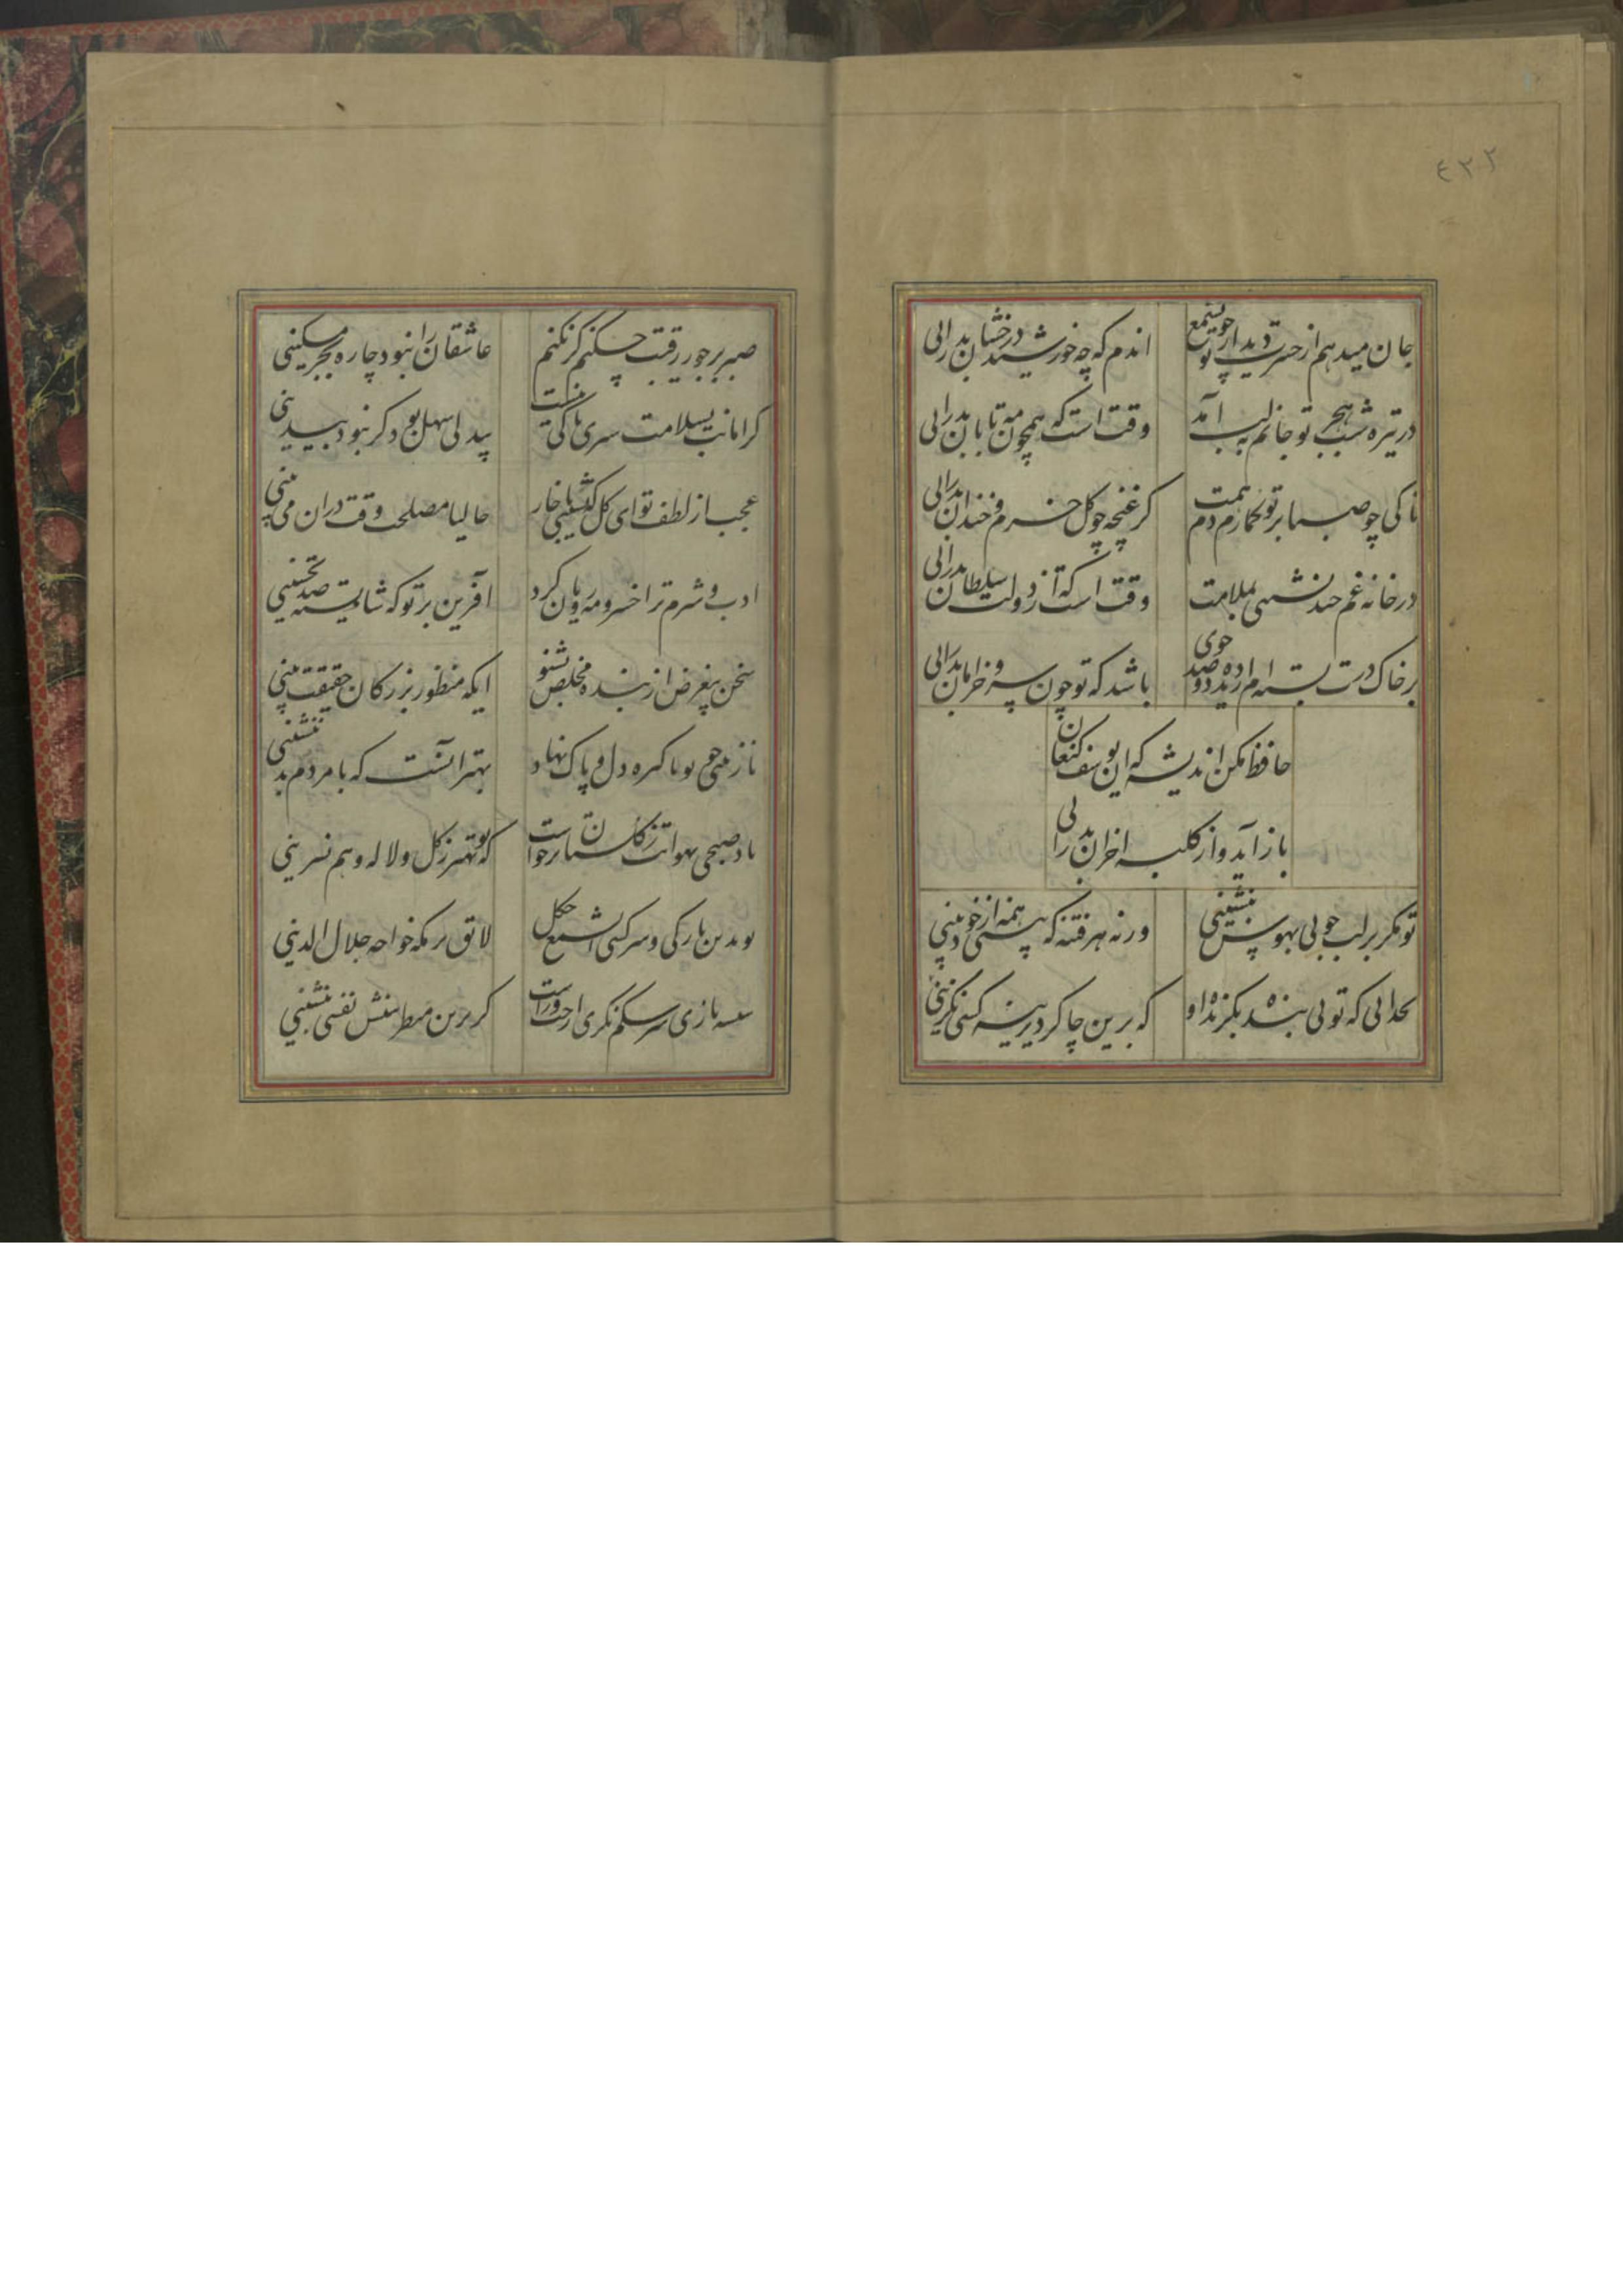 ۴۳۲
جان میدهم از حسرت دیدار تو چو شمع
اندم که چه خورشید درخشان بدرائی
در تیره شب هجر تو جانم به لب آمد
وقت است که همچون مه تابان بدرائی
تا کی چو صبا بر تو گمارم دم همت
کز غنچه چو گل خرم و خندان بدرائی
در خانه غم چند نشینی بملامت
وقت است که از دولت سلطان بدرائی
بر خاک درت بسته ام از دیده دو صد جوی
باشد که تو چون سرو خرامان بدرائی
حافظ مکن اندیشه که این یوسف کنعان
باز آید و از کلبه احزان بدرائی
تو مگر بر لب جوئی بهوس بنشینی
ورنه هر فتنه که بینی همه از خود بینی
بخدائی که توئی بنده بگزیده او
که برین چاکر دیرینه کسی نگزینی
صبر بر جور رقیبت چکنم گر نکنم
عاشقان را نبود چاره بجز مسکینی
گر امانت بسلامت ببری باکی نیست
بیدلی سهل بود گر نبود بیدینی
عجب از لطف تو ای گل که نشینی با خار
حالیا مصلحت وقت دران می بینی
ادب و شرم ترا خسرو مه رویان کرد
آفرین بر تو که شایسته صد تحسینی
سخن بیغرض از بنده مخلص بشنو
ایکه منظور بزرگان حقیقت بینی
نازنینی چو تو پاکیزه دل و پاک نهاد
بهتر انست که با مردم بد ننشینی
باد صبحی بهوایت ز گلستان برخواست
که تو بهتر ز گل و لاله و هم نسرینی
تو بدین نازکی و سرکشی ای شمع چگل
لایق بزمگه خواجه جلال الدینی
شیشه بازی سرشکم نگری از چپ و راست
گر برین منظر بینش نفسی بنشینی